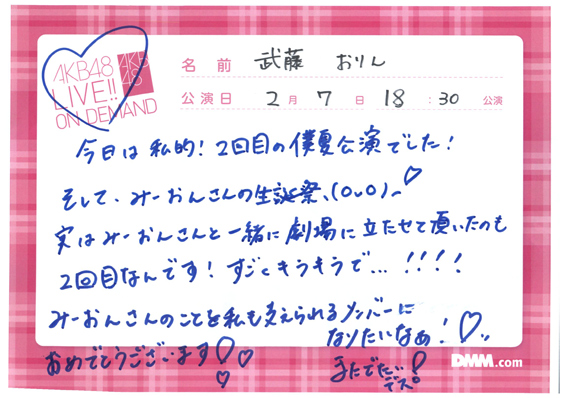 AKB48
LIVE!!
ON DEMAND
AKB
48
名前 武藤 おりん
公演日 2月 7日 18:30 公演
今日は私的！2回目の僕夏公演でした！
そして、みーおんさんの生誕祭、(OvO)~♡
実はみーおんさんと一緒に劇場に立たせて頂いたのも
2回目なんです！すごくキラキラで...!!!!
みーおんさんのことを私も支えられるメンバーに
なりたいなぁ！♡
おめでとうございます♡♡♡
DMM.com